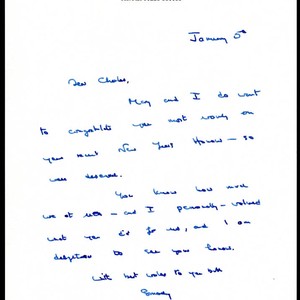 January 5th
Dear Charles,
Mary and I do want
to congratulate you most warmly on
your recent New Years Honour — so
well deserved.
You know how much
we at — and I personally — valued
what you did for us, and I am
delighted to see you
With best wishes to you both